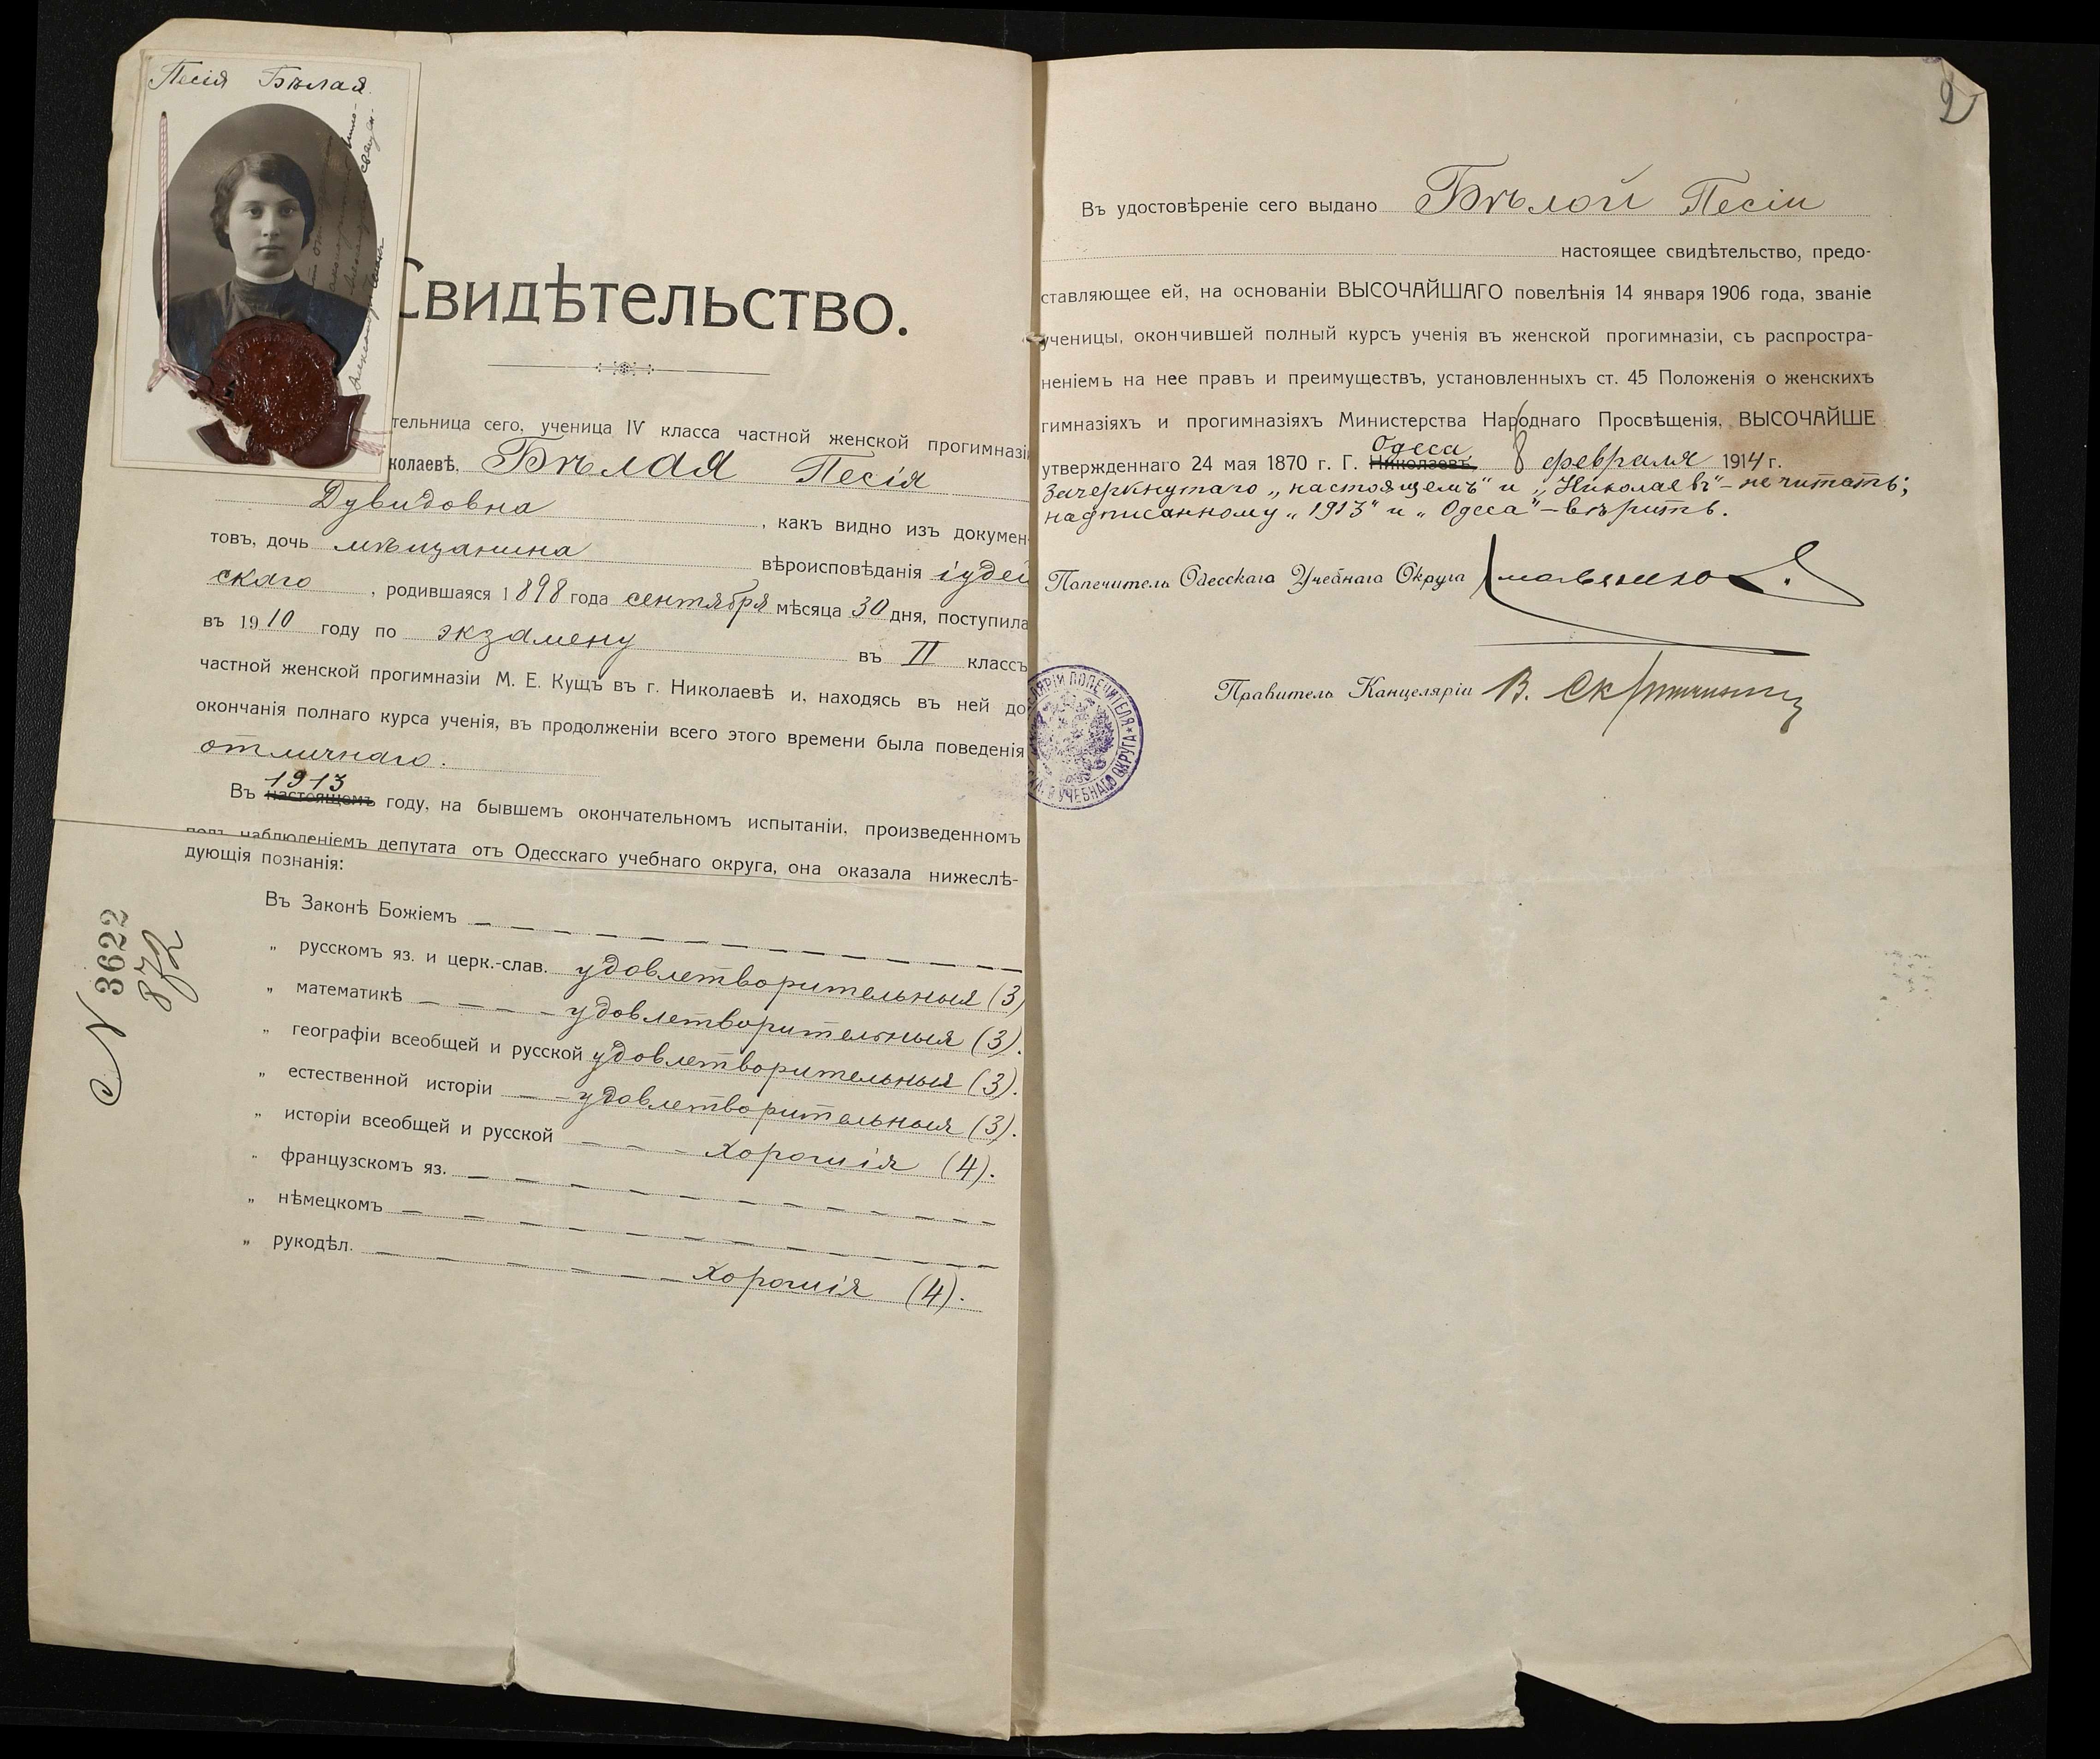 Песія Бѣлая.
Свидѣтельство.
тельница сего, ученица IV класса частной женской прогимназі
колаевѣ, Бѣлая Песія
Дувидовна, какъ видно изъ докумен-
товъ, дочь мѣщанина вѣроисповѣданія іудей
скаго, родившаяся 1898 года сентября мѣсяца 30 дня, поступила
въ 1910 году по экзамену въ II классъ
частной женской прогимназіи М. Е. Кущъ въ г. Николаевѣ и, находясь въ ней до
окончанія полнаго курса ученія, въ продолженіи всего этого времени была поведенія
отличнаго.
1913
Въ настоящемъ году, на бывшемъ окончательномъ испытаніи, произведенномъ
подъ наблюденіемъ депутата отъ Одесскаго учебнаго округа, она оказала нижеслѣ-
дующія познанія:
Въ Законѣ Божіемъ — — — — — — — — — —
„ русскомъ яз. и церк.-слав. удовлетворительныя (3)
„ математикѣ — — — удовлетворительныя (3).
„ географіи всеобщей и русской удовлетворительныя (3).
„ естественной исторіи — — удовлетворительныя (3).
„ исторіи всеобщей и русской — — — хорошія (4).
„ французскомъ яз. — — — — — — — — — —
„ нѣмецкомъ — — — — — — — — — —
„ рукодѣл. — — — — — — хорошія (4).
N 3622
872
2
Въ удостовѣреніе сего выдано Бѣлой Песіи
настоящее свидѣтельство, предо-
ставляющее ей, на основаніи ВЫСОЧАЙШАГО повелѣнія 14 января 1906 года, званіе
ученицы, окончившей полный курсъ ученія въ женской прогимназіи, съ распростра-
неніемъ на нее правъ и преимуществъ, установленныхъ ст. 45 Положенія о женскихъ
гимназіяхъ и прогимназіяхъ Министерства Народнаго Просвѣщенія, ВЫСОЧАЙШЕ
Одесса
утвержденнаго 24 мая 1870 г. Г. Николаевъ, 8 февраля 1914 г.
Зачеркнутаго „настоящемъ" и „Николаевъ" – не читать;
надписанному „1913" и „Одесса" – вѣрить.
Попечитель Одесскаго Учебнаго Округа
Правитель Канцеляріи В.
ПОПЕЧИТЕЛЯ * УЧЕБНАГО ОКРУГА